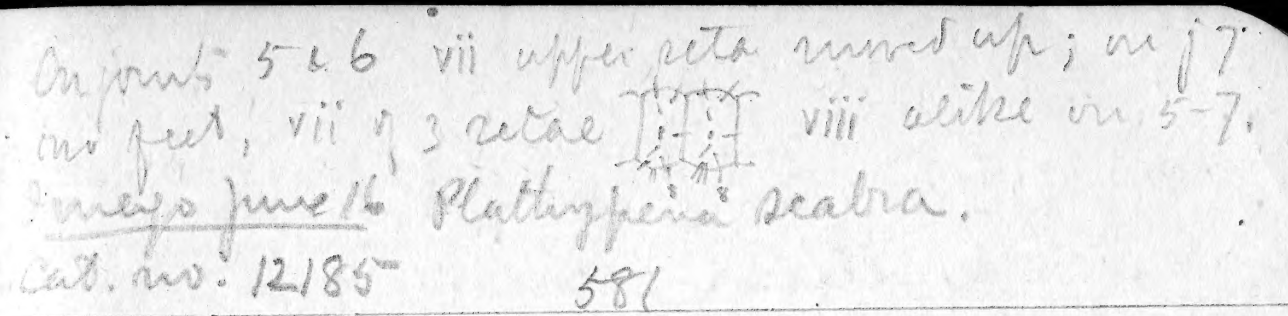 On joints 5 & 6 vii upper seta moved up; on j 7
no feet, vii of 3 setae viii alike on 5-7.
Imago June 16 Plathypena scabra.
Cat. no. 12185 581